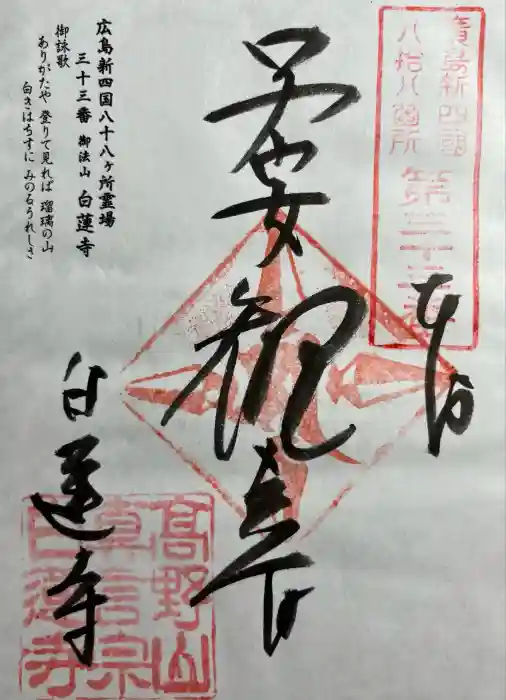 廣島新四國
八拾八箇所 第三十三番
奉拝
子安観音
広島新四国八十八ヶ所霊場
三十三番 御法山 白蓮寺
御詠歌
ありがたや 登りて見れば 瑠璃の山
白きはちすに みのるうれしさ
白蓮寺
高野山
真言宗
白蓮寺